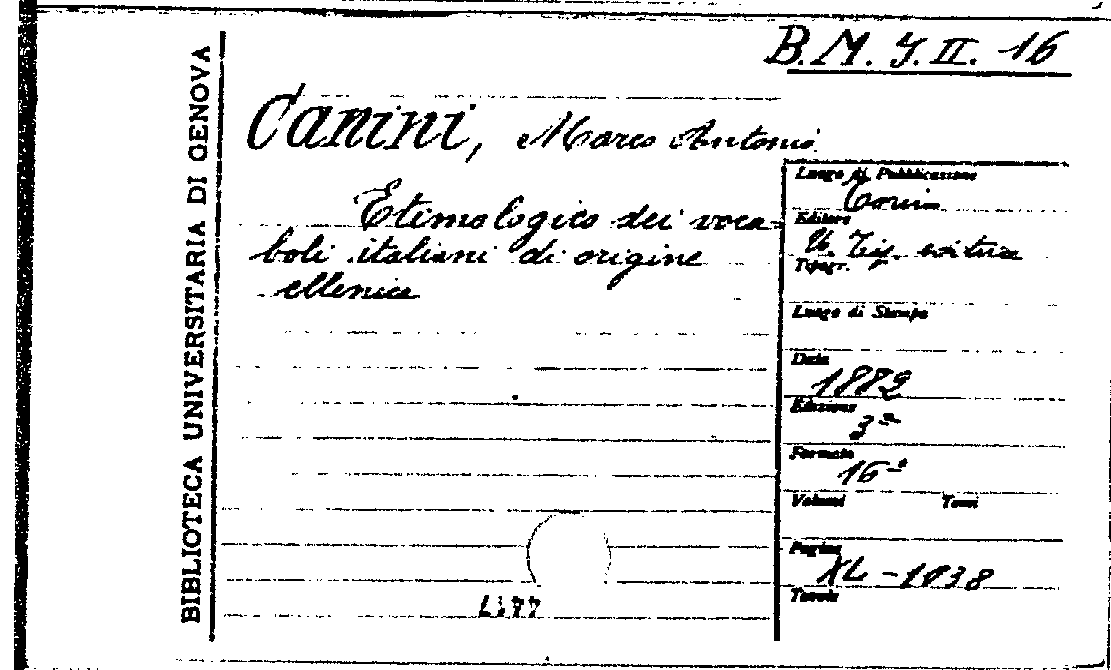 B.M. Y. II. 16
BIBLIOTECA UNIVERSITARIA DI GENOVA
Canini, Marco Antonio
Etimologico dei voca-
boli italiani di origine
ellenica
Luogo di Pubblicazione
Torino
Editore
U. Tip. editrice
Tipogr.
Luogo di Stampa
Data
1882
Edizione
3ª
Formato
16º
Volumi Tomi
Pagine
XL-1038
Tavole